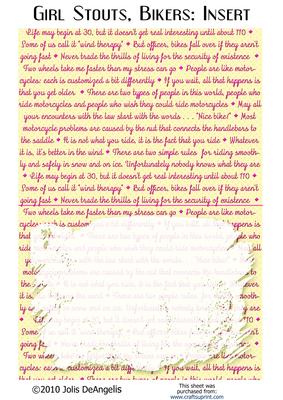 Girl Stouts, Bikers: Insert
Life may begin at 30, but it doesn't get real interesting until about 110 ♦
Some of us call it "wind therapy" ♦ But officer, bikes fall over if they aren't
going fast ♦ Never trade the thrills of living for the security of existence ♦
Two wheels take me faster than my stress can go ♦ People are like motor-
cycles: each is customized a bit differently ♦ If you wait, all that happens is
that you get older. ♦ There are two types of people in this world, people who
ride motorcycles and people who wish they could ride motorcycles ♦ May all
your encounters with the law start with the words . . . "Nice bike!" ♦ Most
motorcycle problems are caused by the nut that connects the handlebars to
the saddle ♦ It is not what you ride, it is the fact that you ride ♦ Whatever
it is, it's better in the wind. ♦ There are two simple rules for riding smooth-
ly and safely in snow and on ice. Unfortunately nobody knows what they are
♦ Life may begin at 30, but it doesn't get real interesting until about 110 ♦
Some of us call it "wind therapy" ♦ But officer, bikes fall over if they aren't
going fast ♦ Never trade the thrills of living for the security of existence ♦
Two wheels take me faster than my stress can go ♦ People are like motor-
cycles: each is
that you
ride mo
your
motor
the
it is,
ly and
♦ Life
Some of
going fast
Two whee
cycles: each is customized a bit differently
that you get older. ♦ There are two types of people in this world, people who
©2010 Jolis DeAngelis
This sheet was
purchased from:
www.craftsuprint.com